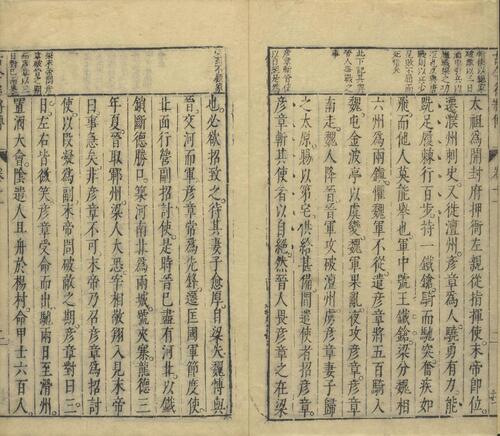 太祖為開封府押衙左親從指揮使。末帝即位。
遷濮州刺史又徙澶州。彥章為人驍勇有力。能
跣足履棘行百步。持一鐵鎗。騎而馳突。奮疾如
飛。而他人莫能舉也。軍中號王鐵鎗。梁分魏相
六州為兩鎮。懼魏軍不從。遣彥章將五百騎入
魏屯金波亭以虞變。魏軍果亂。夜攻彥章。彥章
南走。魏人降晉。晉軍攻破澶州。虜彥章妻子歸
之太原。賜以第宅。供給甚備。間遣使者招彥章。
彥章斬其使者以自絕。然晉人畏彥章之在梁
也。必欲招致之。待其妻子愈厚。自梁失魏博。與
晉夾河而軍。彥章常為先鋒。遷匡國軍節度使。
北面行營副招討使。是時晉已盡有河北。以鐵
鎖斷德勝口。築河南北為兩城。號夾寨。龍德三
年夏。晉取鄆州。梁人大恐。宰相敬翔入見末帝
曰。事急矣。非彥章不可。末帝乃召彥章為招討
使。以段凝為副。末帝問破敵之期。彥章對曰。三
日。左右皆微笑。彥章受命而出。馳兩日至滑州。
置酒大會。陰遣人具舟於楊村。命甲士六百人。